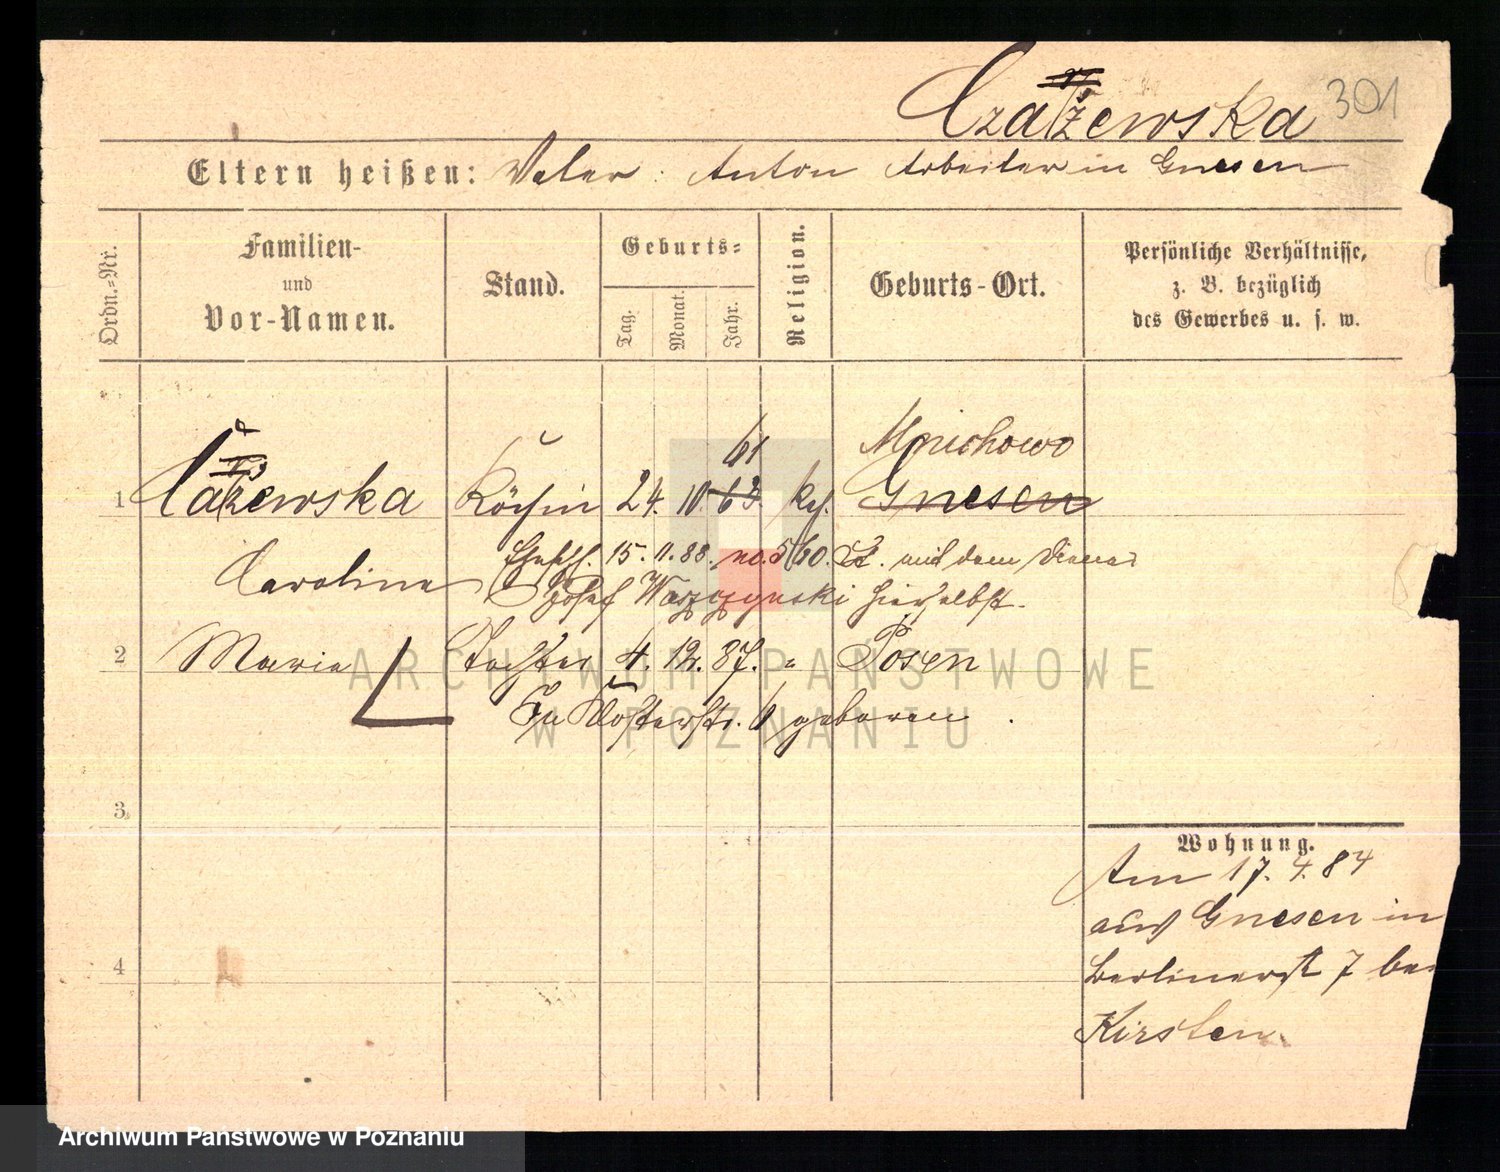 Czażewska 301
Eltern heißen: Vater: Anton Arbeiter in Gnesen
Ordn.-Nr.
Familien-
und
Vor-Namen.
Stand.
Geburts-
Tag.
Monat.
Jahr.
Religion.
Geburts-Ort.
Persönliche Verhältnisse,
z. B. bezüglich
des Gewerbes u. s. w.
61 Mnichowo
1 Köchin 24. 10. 63. kth. Gnesen
Carolina
15. 11. 88. no. 560. mit dem
Josef Waszczynski hierselbst.
2 Maria Tochter 4. 12. 87. " Posen
In Klosterstr. 6 geboren.
3
4
Wohnung.
Am 17. 4. 84
aus Gnesen in
Berlinerst 7 bei
Kirsten
ARCHIWUM PAŃSTWOWE
W POZNANIU
Archiwum Państwowe w Poznaniu